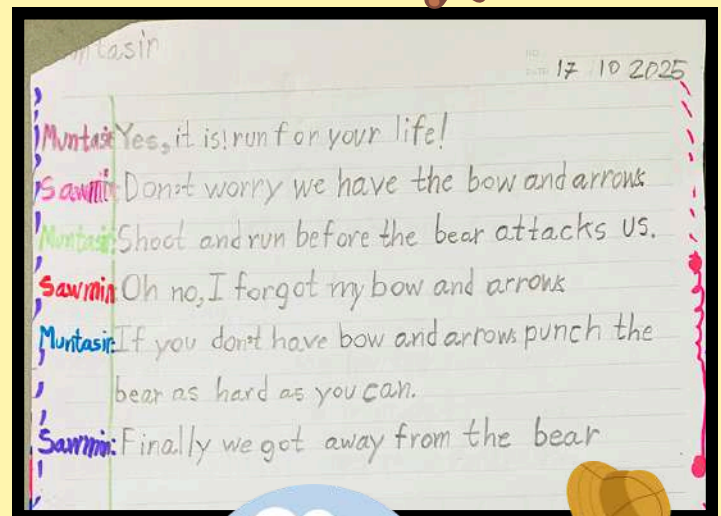 Muntasir
NO.
DATE: 17 10 2025
Muntasir Yes, it is! run for your life!
Sawmin: Don't worry we have the bow and arrows
Muntasir: Shoot and run before the bear attacks us.
Sawmin Oh no, I forgot my bow and arrows
Muntasir: If you don't have bow and arrows punch the
bear as hard as you can.
Sawmin: Finally we got away from the bear